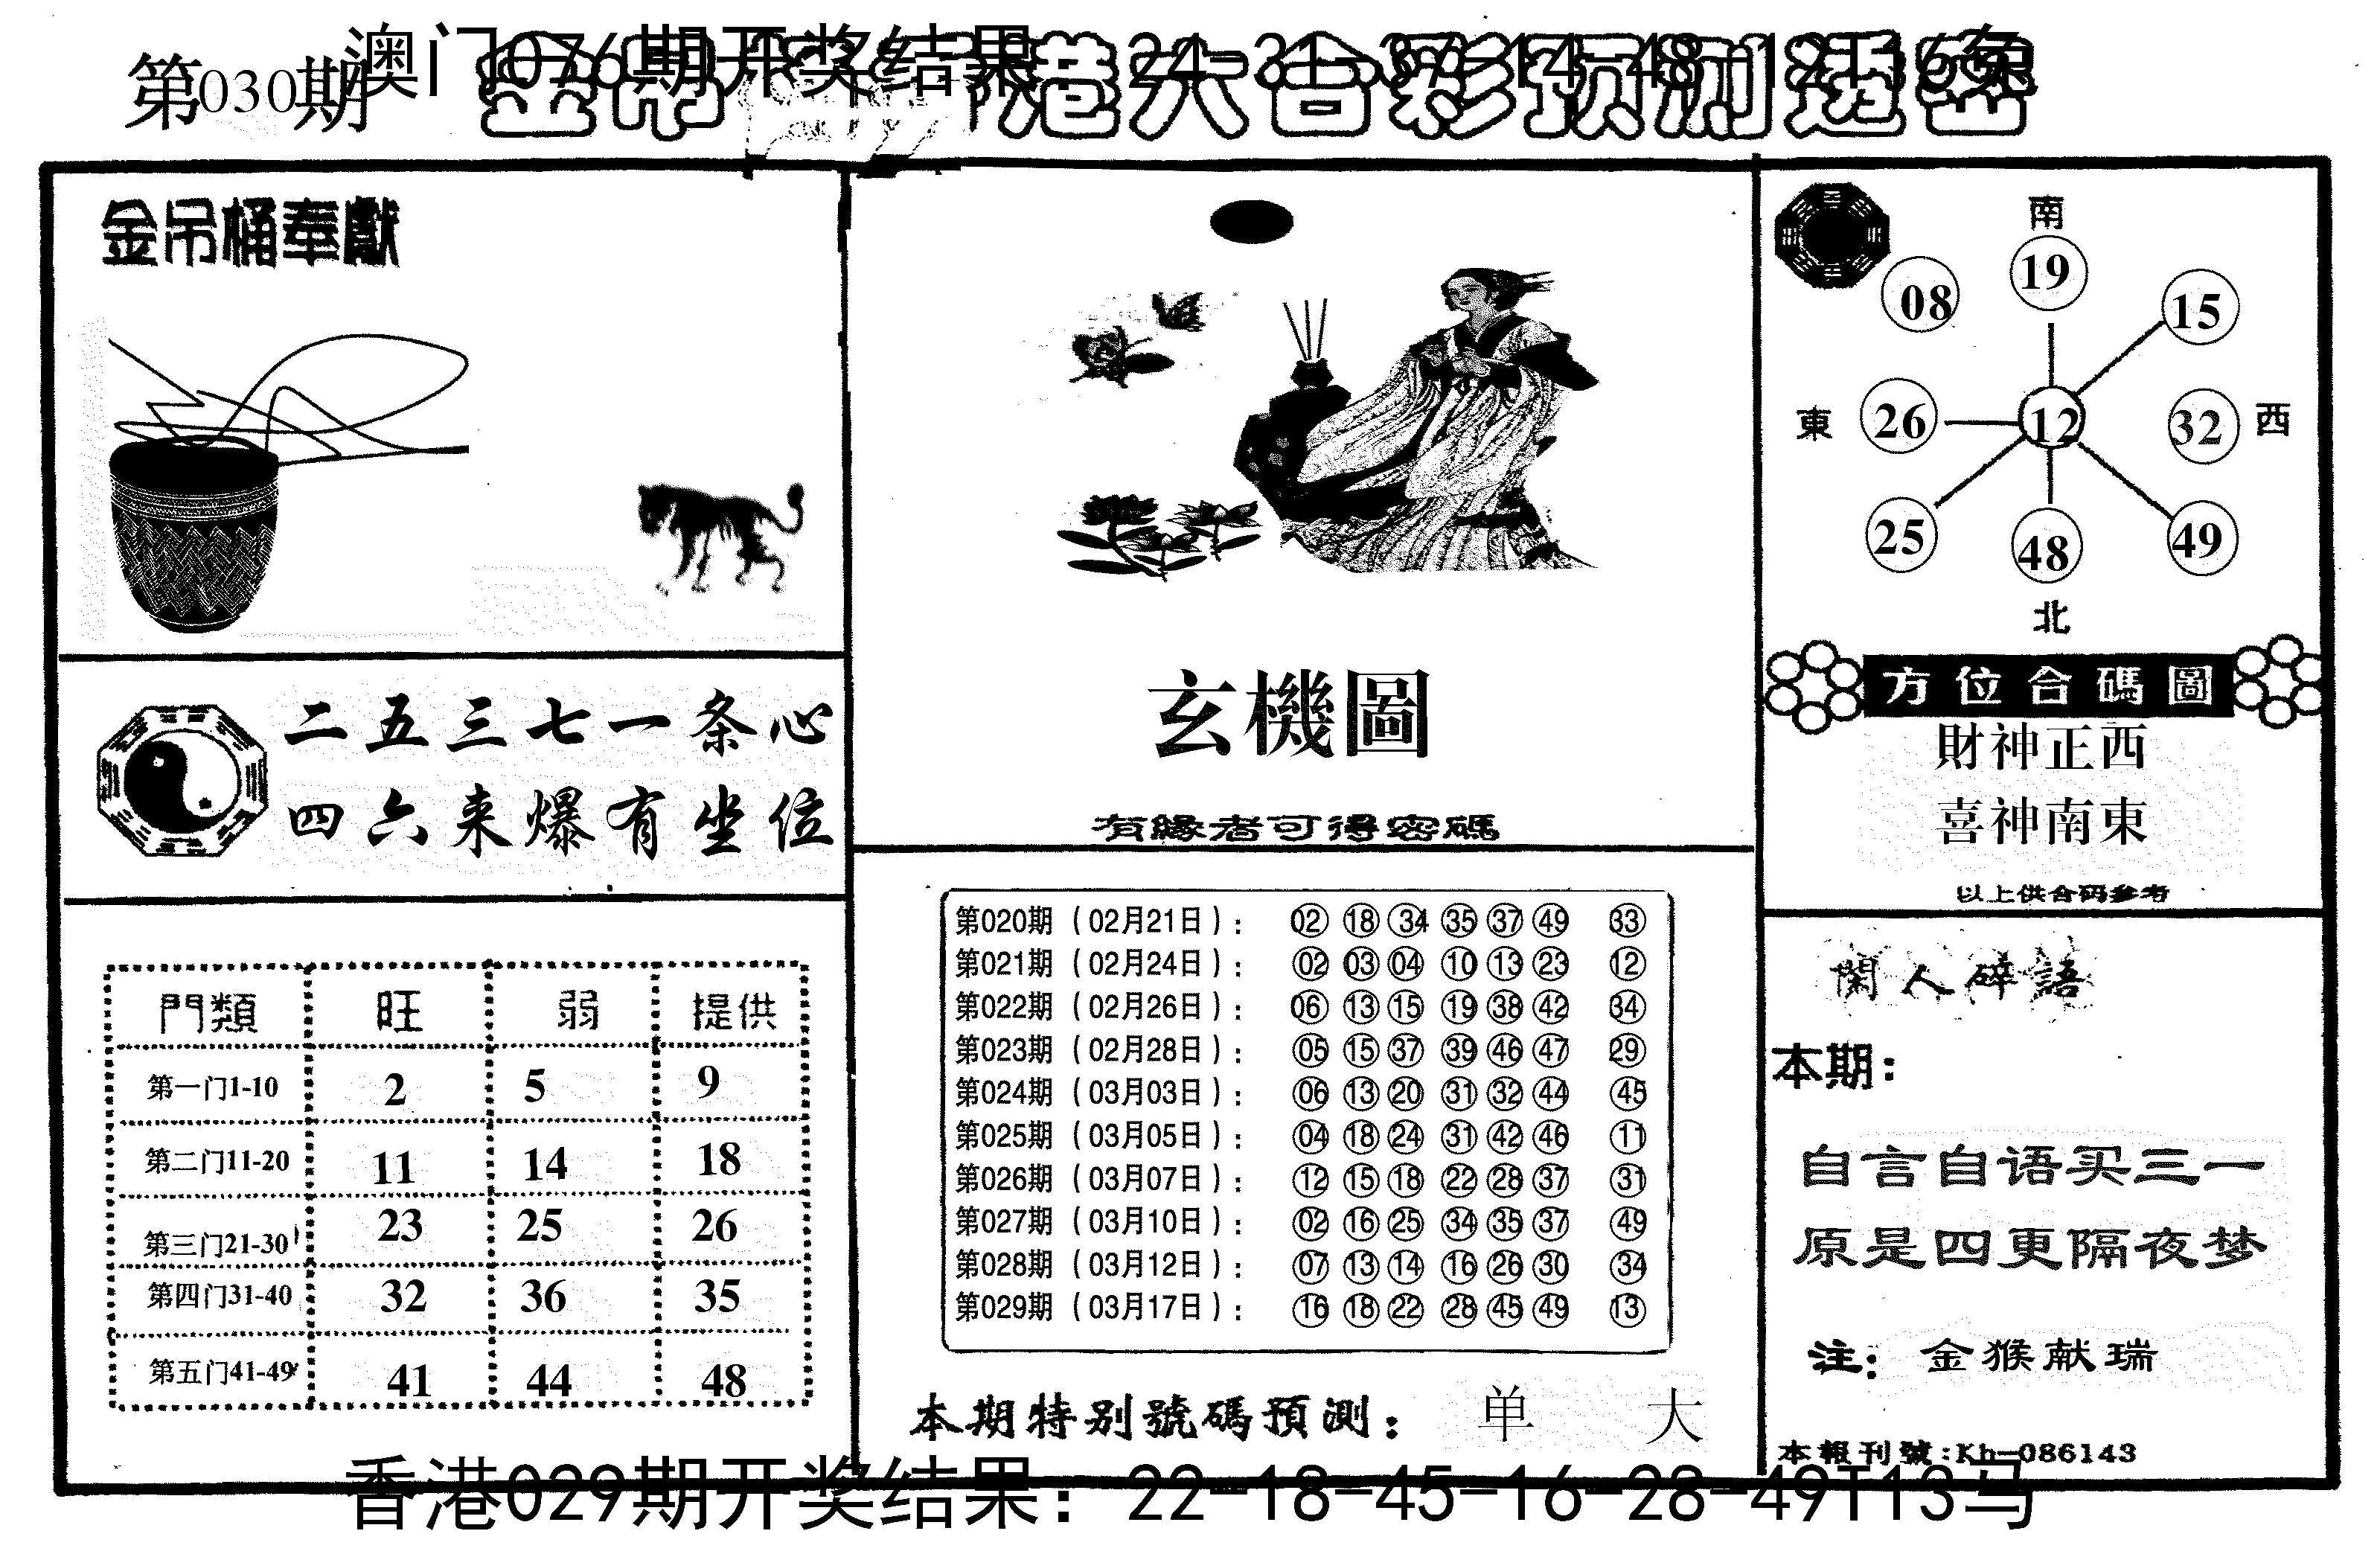 第030期
澳门076期开奖结果
港六合彩预测透密
金吊桶奉獻
二五三七一条心
四六来爆有坐位
門類 旺 弱 提供
第一门1-10 2 5 9
第二门11-20 11 14 18
第三门21-30 23 25 26
第四门31-40 32 36 35
第五门41-49 41 44 48
玄機圖
有緣者可得密碼
第020期（02月21日）： 02 18 34 35 37 49 33
第021期（02月24日）： 02 03 04 10 13 23 12
第022期（02月26日）： 06 13 15 19 38 42 34
第023期（02月28日）： 05 15 37 39 46 47 29
第024期（03月03日）： 06 13 20 31 32 44 45
第025期（03月05日）： 04 18 24 31 42 46 11
第026期（03月07日）： 12 15 18 22 28 37 31
第027期（03月10日）： 02 16 25 34 35 37 49
第028期（03月12日）： 07 13 14 16 26 30 34
第029期（03月17日）： 16 18 22 28 45 49 13
本期特别號碼預測： 单 大
南
08 19 15
東 26 12 32 西
25 48 49
北
方位合碼圖
財神正西
喜神南東
以上供合码参考
閑人碎語
本期：
自言自语买三一
原是四更隔夜梦
注：金猴献瑞
本報刊號:Kh-086143
香港029期开奖结果：22-18-45-16-28-49T13马